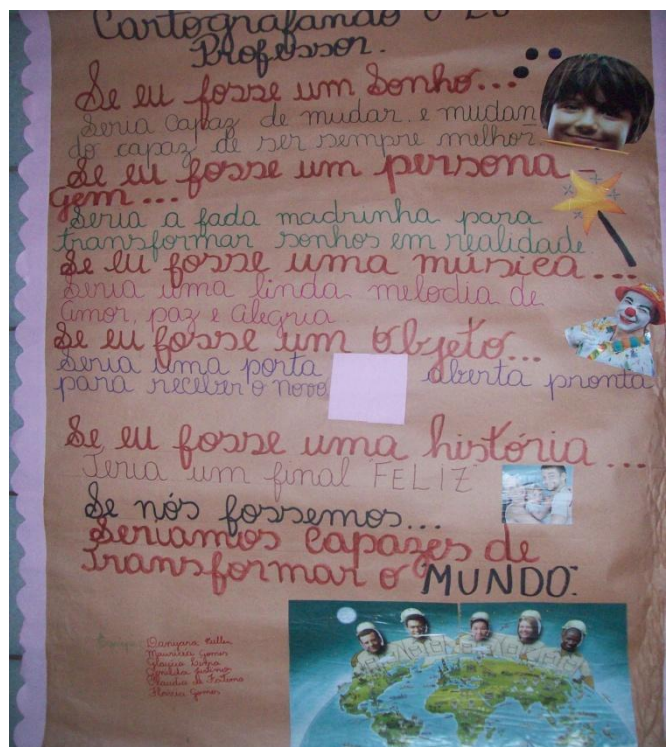 Cartografando o
Professor.
Se eu fosse um Sonho...
Seria capaz de mudar, e mudan
do capaz de ser sempre melhor.
Se eu fosse um persona-
gem...
Seria a fada madrinha para
transformar sonhos em realidade
Se eu fosse uma música...
Seria uma linda melodia de
amor, paz e alegria
Se eu fosse um objeto...
Seria uma porta aberta pronta
para receber o novo
Se eu fosse uma história...
Teria um final FELIZ
Se nós fossemos...
Seriamos capazes de
transformar o MUNDO.
Mauricia Gomes
Claudia de Fatima
Gomes